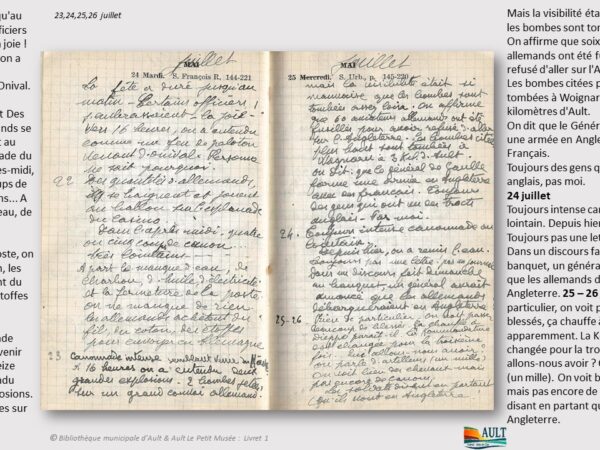 23,24,25,26 juillet
qu'au
fficiers
joie !
on a
Onival.
t Des
nds se
t au
ade du
ès-midi,
ups de
ns... A
eau, de
oste, on
n, les
nt du
toffes
ade
venir
eize
ndu
osions.
es sur
juillet
MAI
24 Mardi. S. François R. 144-221
La fête a duré jusqu'au
matin – Certains officiers !
– la joie –
Vers 16 heures, on a entendu
comme un feu de peloton
venant d'Onival. Personne
ne sait pourquoi.
22 Des quantités d'allemands
se baignent et jouent
au ballon sur l'esplanade
du Casino.
Dans l'après midi, quatre
ou cinq coups de canon
très lointains –
A part le manque d'eau, de
charbon, d'huile, d'électricité
et la fermeture de la poste,
on ne manque de rien
les allemands achètent du
fil, du coton, des étoffes
pour envoyer en Allemagne
23 Canonnade
à 16 heures on a entendu deux
grandes explosions. 2 bombes
sur un grand convoi allemand.
juillet
MAI
25 Mercredi. S. Urb., p. 145-220
mais la visibilité était si
mauvaise que les bombes sont
tombées assez loin. On affirme
que 60 aviateurs allemands ont été
fusillés pour avoir refusé d'aller
sur l'Angleterre. Les bombes citées
plus haut sont tombées à
Woignarue à 3 K. d'Ault.
On dit que le général de Gaulle
forme une armée en Angleterre
avec des français. Toujours
des gens qui ont eu des tracts
anglais – Pas moi.
24 – Toujours intense canonnade au
lointain.
Depuis hier, on a remis l'eau.
Toujours pas une lettre, pas un journal
Dans un discours fait dimanche
au banquet, un général aurait
annoncé que les allemands
débarqueraient Angleterre
25-26 Rien de particulier, on voit passer
beaucoup de blessés, ça chauffe à
Dieppe paraît il. La Kommandantur
est changée pour la troisième
fois. Qui allons-nous avoir ?
On parle d'artilleurs (un mille)
On voit bien des chevaux mais
pas encore de canons.
La police disait en partant
qu'ils vont en Angleterre
Mais la visibilité éta
les bombes sont ton
On affirme que soix
allemands ont été fu
refusé d'aller sur l'A
Les bombes citées p
tombées à Woignar
kilomètres d'Ault.
On dit que le Génér
une armée en Angle
Français.
Toujours des gens q
anglais, pas moi.
24 juillet
Toujours intense can
lointain. Depuis hier
Toujours pas une let
Dans un discours fa
banquet, un généra
que les allemands d
Angleterre. 25 – 26
particulier, on voit p
blessés, ça chauffe a
apparemment. La K
changée pour la tro
allons-nous avoir ? (
(un mille). On voit b
mais pas encore de
disant en partant qu
Angleterre.
© Bibliothèque municipale d'Ault & Ault Le Petit Musée : Livret 1
AULT